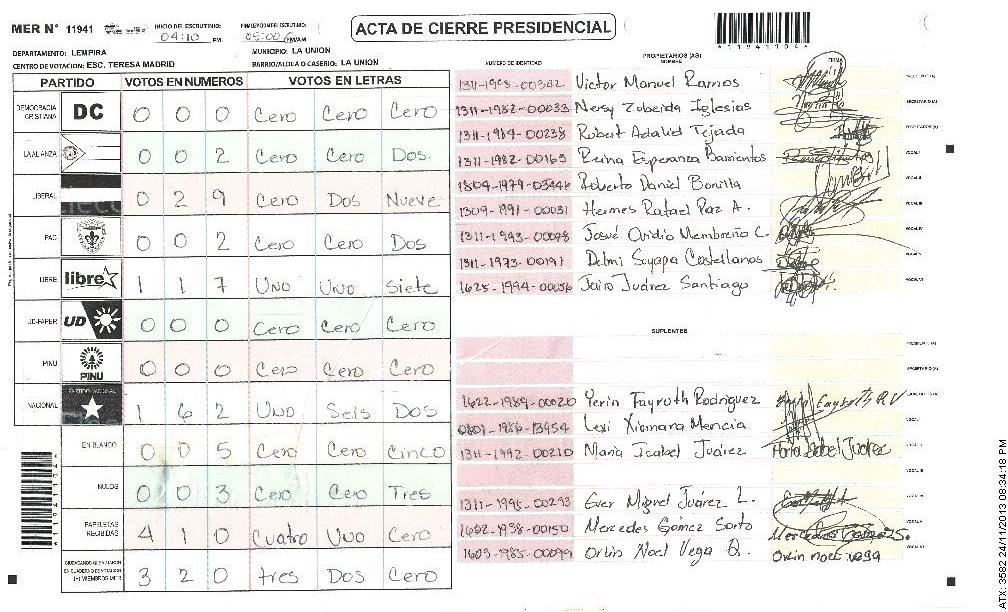 MER Nº 11941
INICIO DEL ESCRUTINIO: 04:10 PM
FINALIZACION DEL ESCRUTINIO: 05:00 PM/AM
ACTA DE CIERRE PRESIDENCIAL
11941044
DEPARTAMENTO: LEMPIRA
MUNICIPIO: LA UNION
CENTRO DE VOTACION: ESC. TERESA MADRID
BARRIO/ALDEA O CASERIO: LA UNION
PARTIDO VOTOS EN NUMEROS VOTOS EN LETRAS
DEMOCRACIA CRISTIANA DC 0 0 0 Cero Cero Cero
LA ALIANZA 0 0 2 Cero Cero Dos
LIBERAL 0 2 9 Cero Dos Nueve
PAC 0 0 2 Cero Cero Dos
LIBRE libre 1 1 7 Uno Uno Siete
UD-FAPER UD 0 0 0 Cero Cero Cero
PINU PINU 0 0 0 Cero Cero Cero
NACIONAL PARTIDO NACIONAL 1 6 2 Uno Seis Dos
EN BLANCO 0 0 5 Cero Cero Cinco
NULOS 0 0 3 Cero Cero Tres
PAPELETAS RECIBIDAS 4 1 0 Cuatro Uno Cero
CIUDADANOS QUE VOTARON 3 2 0 tres Dos Cero
NUMERO DE IDENTIDAD PROPIETARIOS (AS) NOMBRE FIRMA
Victor Manuel Ramos
1311-1982-00033 Nersy Zubeida Iglesias SECRETARIO (A)
1311-1984-00238 Robert Adalid Tejada
1311-1982-00163 Reina Esperanza Barrientos VOCAL I
1804-1979-03446 Roberto Daniel Bonilla VOCAL II
1309-1991-00031 Hermes Rafael Paz A. VOCAL III
1311-1993-00098 Josué Ovidio Membreño C. VOCAL IV
1311-1973-00191 Delmi Suyapa Castellanos VOCAL V
1625-1994-00056 Jairo Juárez Santiago VOCAL VI
SUPLENTES
PRESIDENTE (A)
SECRETARIO (A)
1622-1989-00020 Yerin Tayroth Rodriguez
0801-1986-13954 Lexi Xiomara Mencia VOCAL I
1311-1992-00210 Maria Isabel Juárez Maria Isabel Juarez VOCAL II
VOCAL III
1311-1995-00293 Ever Miguel Juárez L. VOCAL IV
1602-1958-00150 Mercedes Gómez Sorto VOCAL V
1603-1985-00099 Orlin Noel Vega Q. Orlin noel vega VOCAL VI
ATX: 3582 24/11/2013 08:34:18 PM